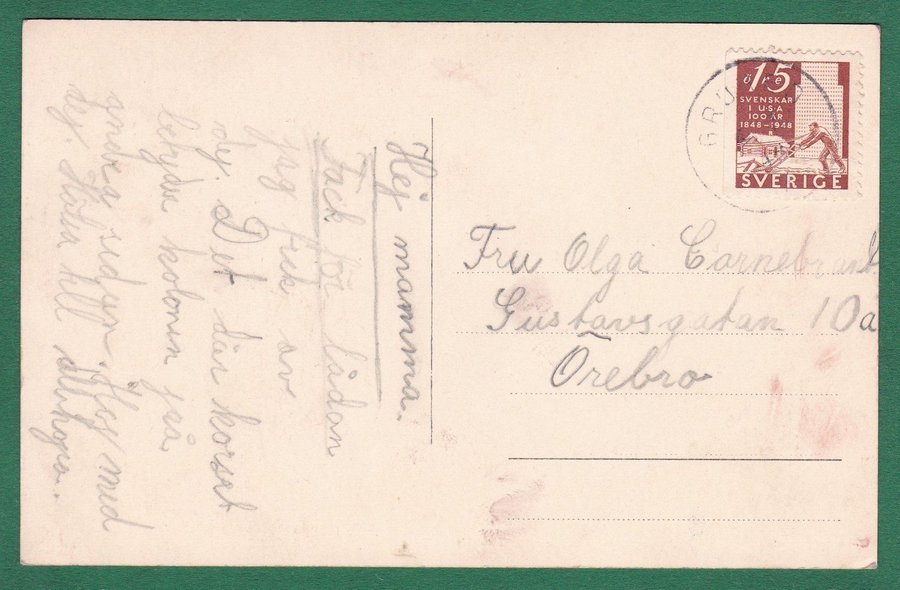 Hej mamma.
Tack för lådan
jag fick av
dej. Det där korset
betyder kolonin på
andra sidan. Hej med
dej Hälsa till allihopa.
15
öre
SVENSKAR
I U.S.A
100 ÅR
1848-1948
SVERIGE
Fru Olga Carnebrant
Gustavsgatan 10a
Örebro